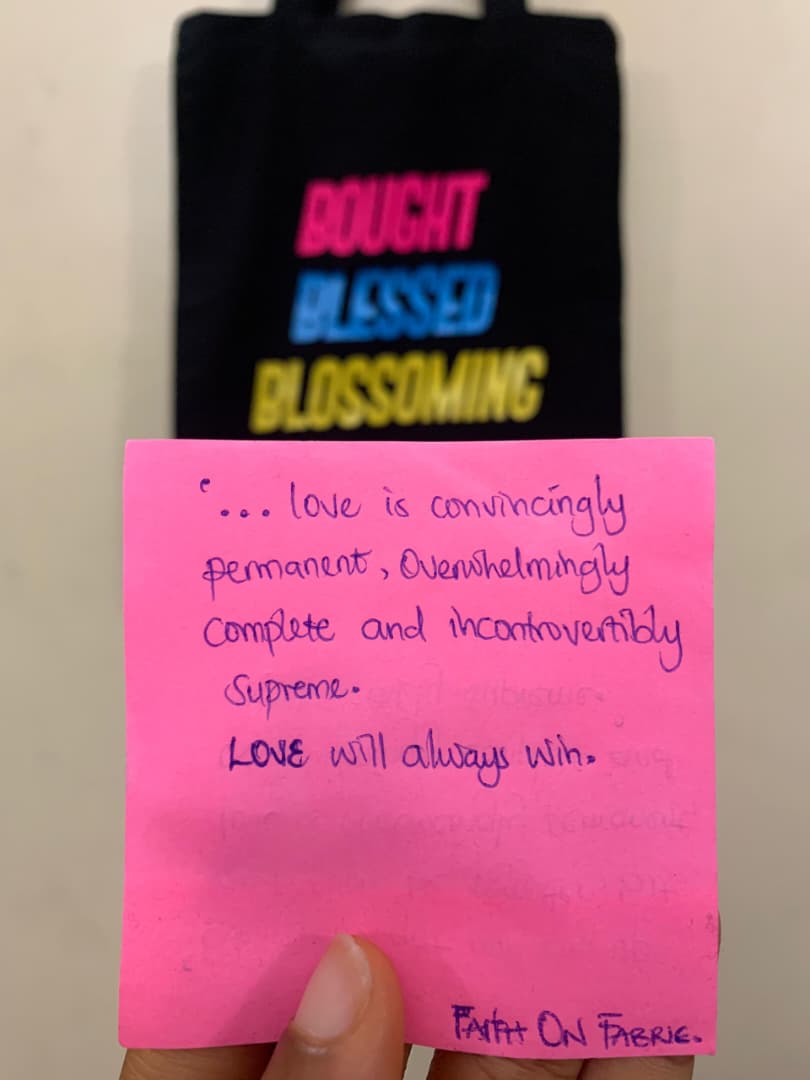 BOUGHT
BLESSED
BLOSSOMING
'... love is convincingly
permanent, Overwhelmingly
complete and incontrovertibly
Supreme.
LOVE will always win.
FAITH ON FABRIC.